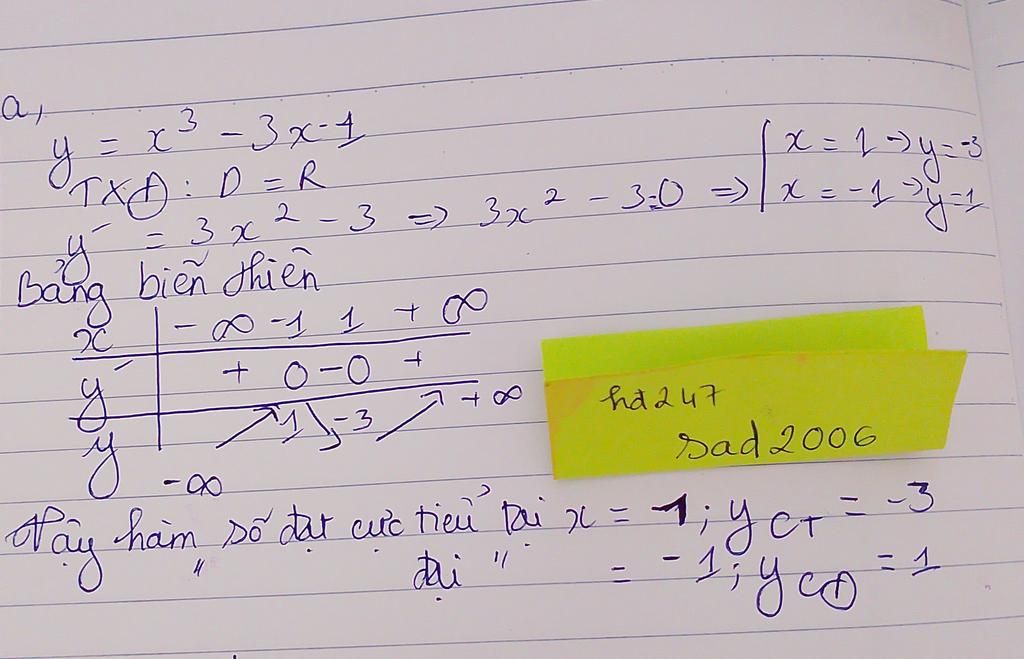 a,
y = x³ - 3x-1
TXĐ: D = R
y' = 3x² - 3 => 3x² - 3=0 => [ x = 1 -> y=-3
x = -1 -> y=1
Bảng biến thiên
x | -∞ -1 1 +∞
y' | + 0 - 0 +
y | -∞ ↗ 1 ↘ -3 ↗ +∞
hd247
sad2006
Vậy hàm số đạt cực tiểu tại x = 1; yCT = -3
" đại " = -1; yCĐ = 1